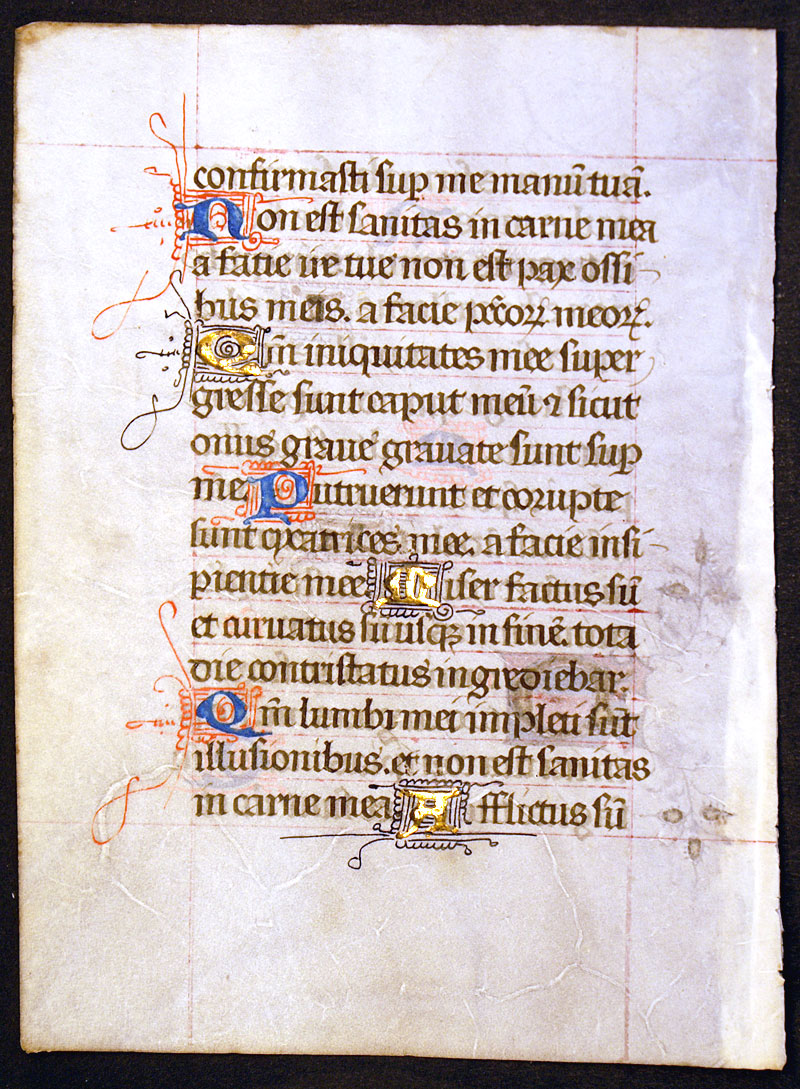 confirmasti sup me manū tuā.
Non est sanitas in carne mea
a facie ire tue non est pax ossi-
bus meis. a facie pctōꝝ meoꝝ.
Qm̄ iniquitates mee super
gresse sunt caput meū ⁊ sicut
onus graue grauate sunt sup
me Putruerunt et corupte
sunt cycatrices mee. a facie insi-
pientie mee Miser factus sū
et curuatus sū usqꝫ in finē. tota
die contristatus ingrediebar.
Qm̄ lumbi mei impleti sūt
illusionibus. et non est sanitas
in carne mea Afflictus sū